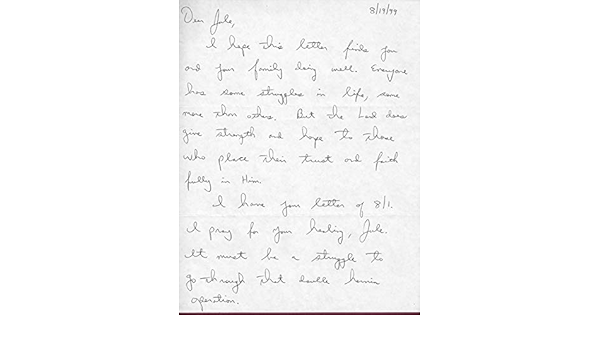 8/19/99
Dear Jule,
I hope this letter finds you
and your family doing well. Everyone
has some struggles in life, some
more than others. But the Lord does
give strength and hope to those
who place their trust and faith
fully in Him.
I have your letter of 8/1.
I pray for your healing, Jule.
It must be a struggle to
go through that double hernia
operation.